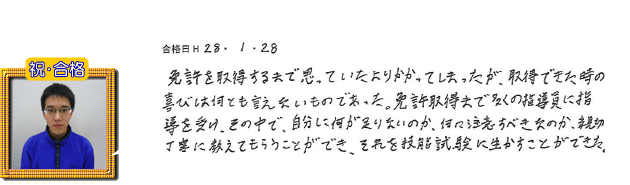 祝・合格
合格日 H 28・1・28
免許を取得するまで思っていたよりかかってしまったが、取得できた時の
喜びは何とも言えないものであった。免許取得まで多くの指導員に指
導を受け、その中で、自分に何が足りないのか、何に注意すべきなのか、親切
丁寧に教えてもらうことができ、それを技能試験に生かすことができた。